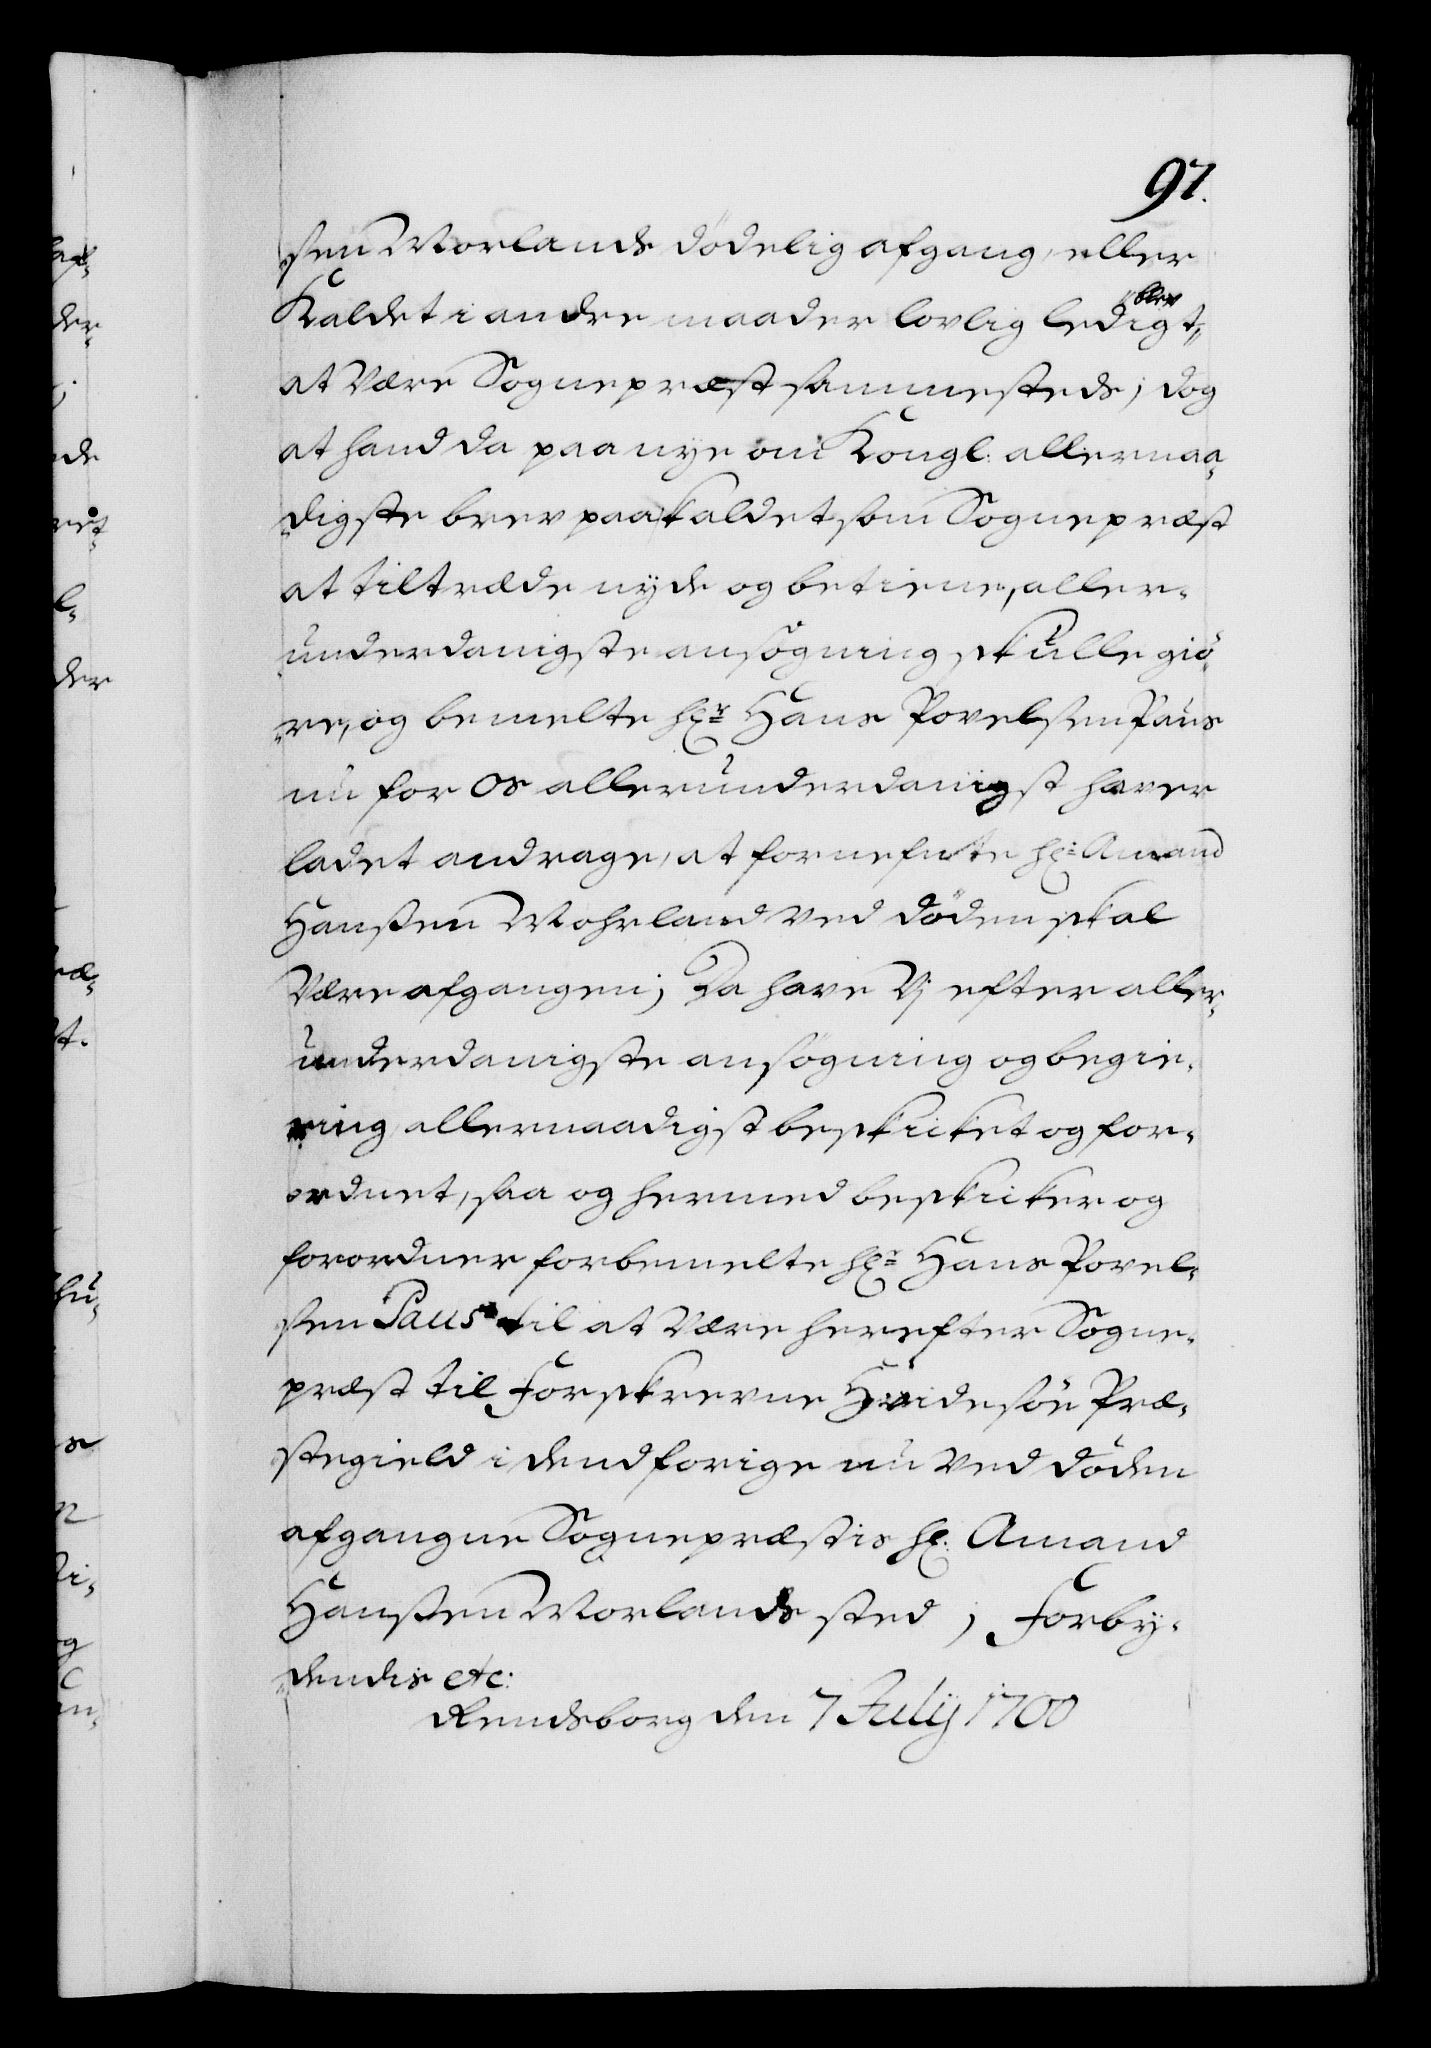 97.
sen Morlands dödelig afgang, eller
Kaldet i andre maader lovlig ledigt blev
at være Sognepræst sammesteds; dog
at hand da paa nye om Kongl: allernaa-
digste brev paa Kaldet som Sognepræst
at tiltræde nyde og betiene, aller-
underdanigste ansögning skulle giö-
re, og bemelte Hr Hans Povelsen Paus
nu for os allerunderdanigst haver
ladet andrage, at fornefnte Hr: Amand
Hanssen Mohrland ved döden skal
være afgangen; Da have Vj efter aller-
underdanigste ansögning og begie-
ring allernaadigst beskicket og for-
ordnet, saa og hermed beskicker og
forordner forbemelte Hr Hans Povel-
sen Paus til at være herefter Sogne-
præst til Forskrevne Hvidesöe Præ-
stegield i dend forige nu ved döden
afgangne Sognepræstis Hr. Amand
Hanssen Morlands sted; Forby-
dendis etc:
Rendsborg den 7 July 1700